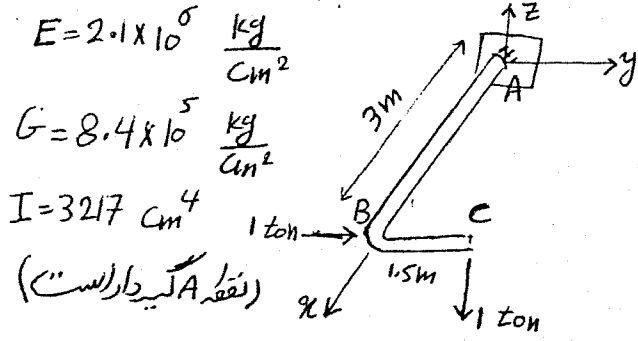 E = 2.1 × 10⁶ kg/cm²
G = 8.4 × 10⁵ kg/cm²
I = 3217 cm⁴
(نقطه A گیردار است)
z
y
A
3m
B
C
1 ton
1.5m
x
1 ton